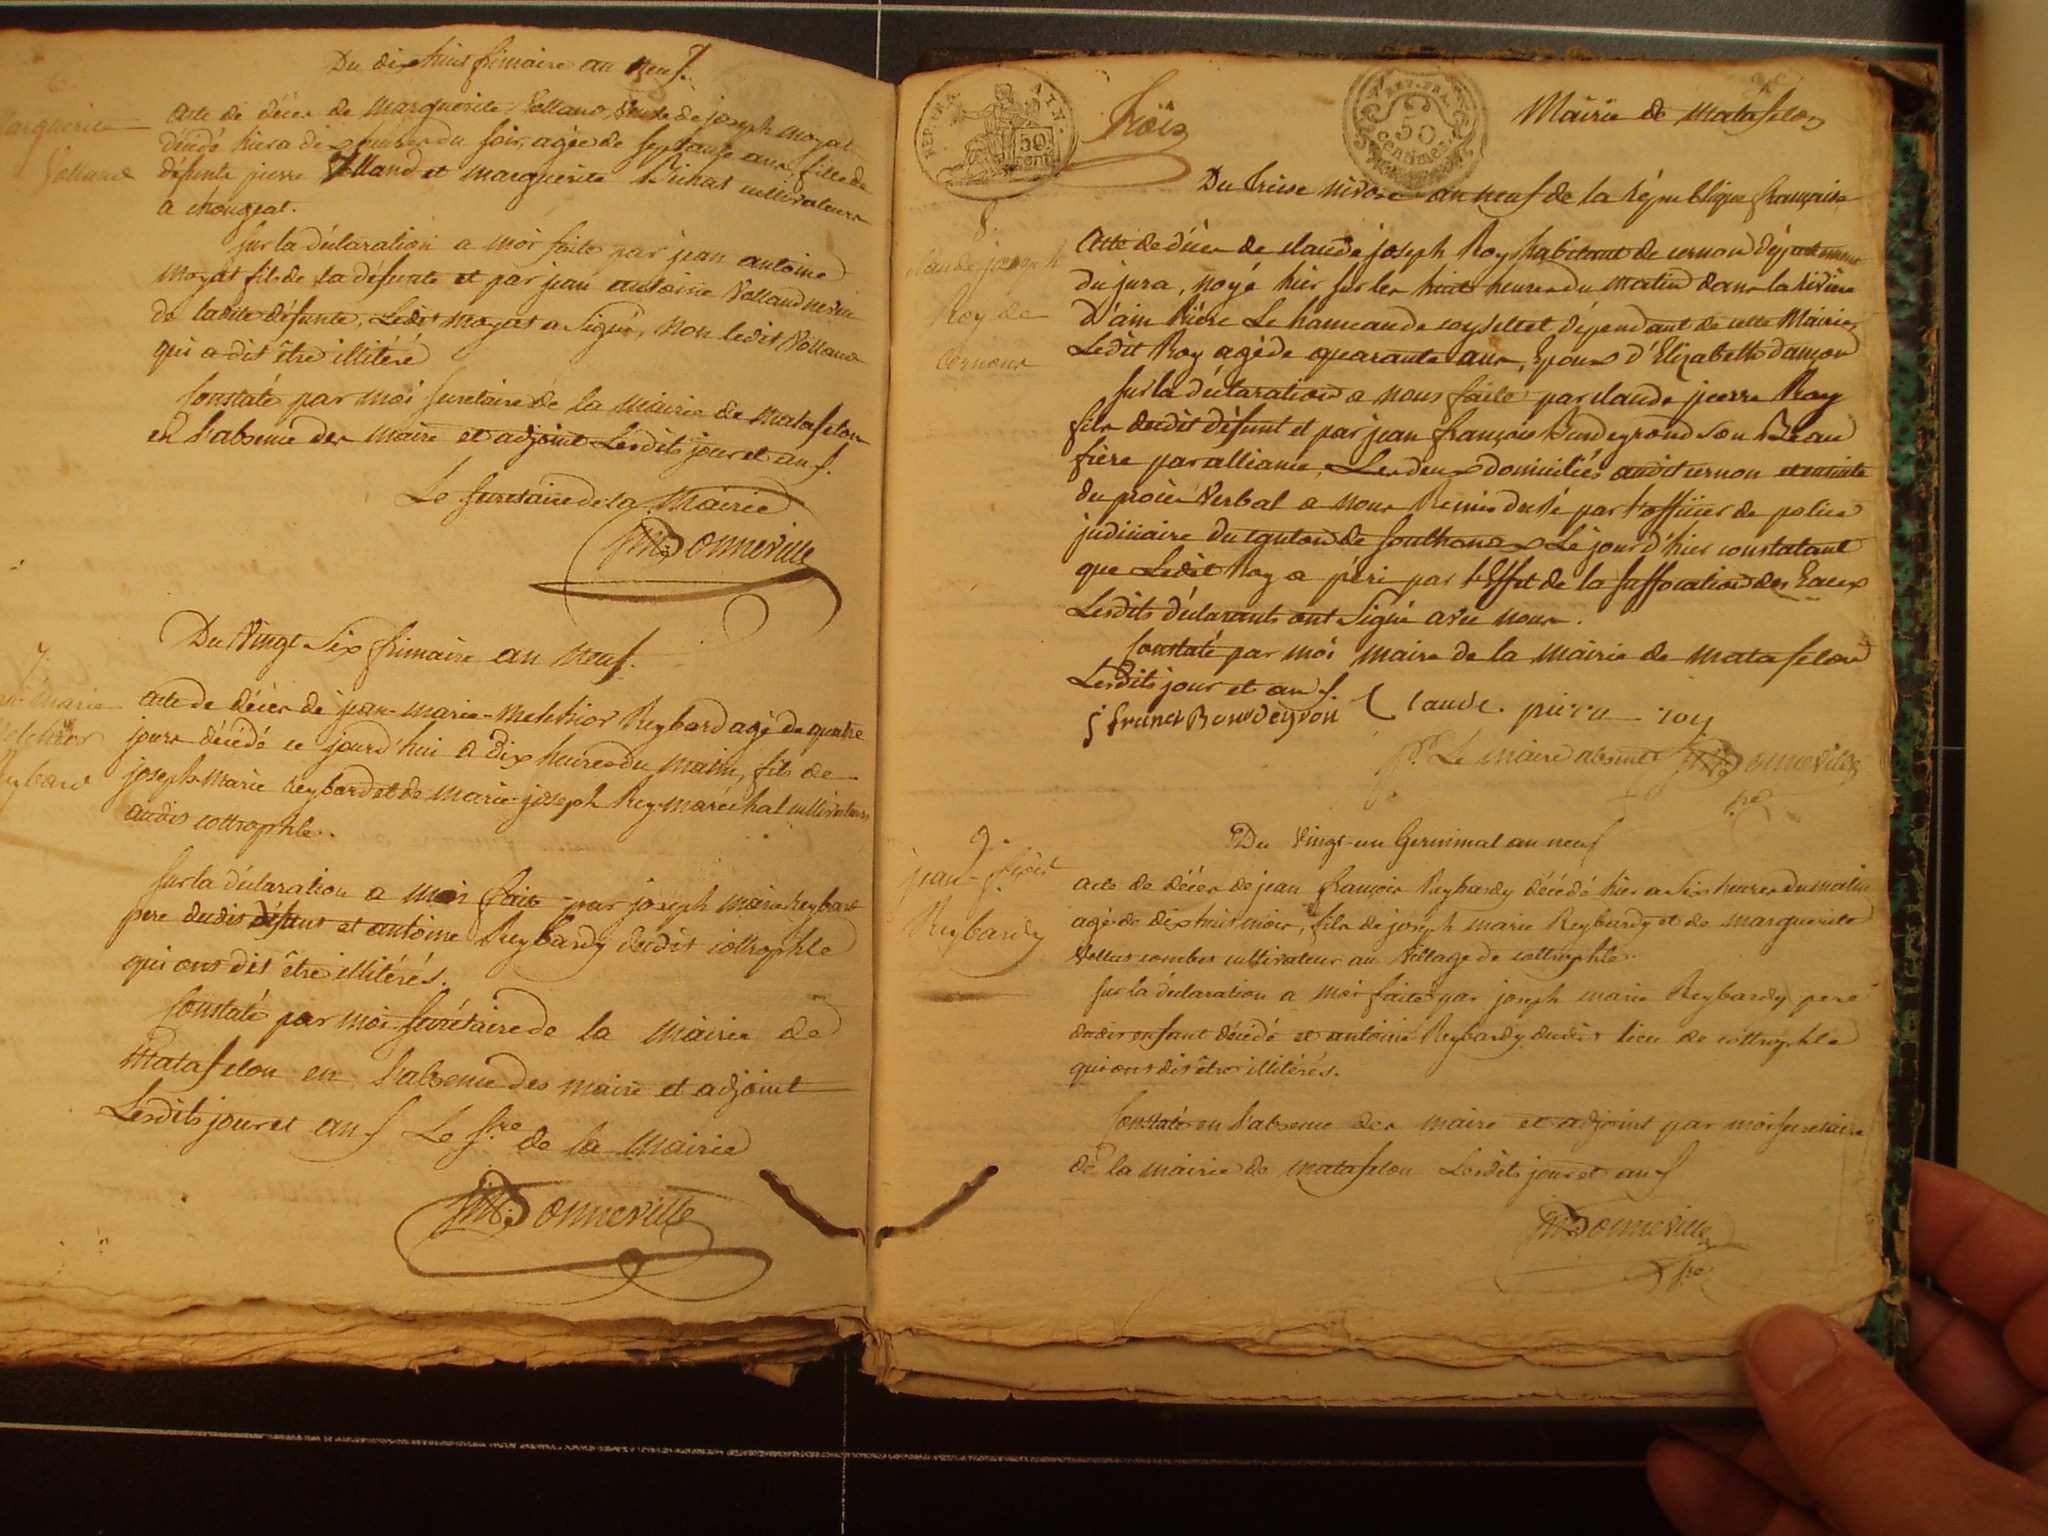 Du dix huit frimaire an neuf.
Marguerite
Volland
acte de décés de Marguerite Volland, Veuve de joseph moyat
décédé hier a dix heures du soir, agée de septante ans, fille de
défunts pierre Volland et marguerite cultivateurs
a chougeat.
Sur la déclaration a moi faite par jean antoine
Moyat fils de la défunte et par jean antoine Volland neveu
de ladite défunte, Ledit moyat a signé, non ledit Volland
qui a dit être illitéré
Constaté par moi secretaire de la mairie de matafelon
en l'absence des maire et adjoint Lesdits jour et an f.
Le secretaire de la Mairie
Bonneville
7.
Du Vingt Six frimaire an neuf.
jean-marie
Melchior
Reybard
acte de décés de jean-marie-Melchior Reybard agé de quatre
jours décédé ce jourd'hui a dix heures du matin, fils de
joseph-marie reybard et de marie-joseph Rey-maréchal cultivateurs
audit cottrophle.
Sur la déclaration a moi faite par joseph marie reybard
pere dudit défunt et antoine Reybardy dudit cottrophle
qui ont dit être illitérés.
Constaté par moi secrétaire de la mairie de
Matafelon en l'absence des maire et adjoint
Lesdits jour et an f Le sre de la mairie
Bonneville
REP. FRA.
50
cent
Trois
REP. FRA.
50
Centimes
Mairie de Matafelon
Du treise nivose an neuf de la république française
8.
claude joseph
Roy de
Cernon
Acte de décés de claude joseph Roy habitant de cernon département
du jura, noyé hier sur les huit heures du matin dans la rivière
d'ain rière Le hameau de coyseltet dépendant de cette Mairie
Ledit Roy agé de quarante ans, Epoux d'Elizabette dançon
Sur la déclaration a nous faite par claude pierre Roy
fils dudit défunt et par jean françois Bundeyrond son Beau
frère par alliance, Les deux domiciliés audit cernon et ensuite
du procès Verbal a nous Remis par l'officier de police
judiciaire du canton de Sonthonax Le jour d'hier constatant
que Ledit Roy a péri par l'Effet de la suffocation des Eaux
Lesdits déclarants ont Signé avec nous.
Constaté par moi maire de la mairie de matafelon
Lesdits jour et an f.
j françoi Bondeyron Claude. pierre roy
pr. Le maire absent Bonneville
sre
9.
Du Vingt-un Germinal an neuf
jean-frçois
Reybardy
acte de décés de jean françois Reybardy décédé hier a six heures du matin
agé de dix huit mois, fils de joseph marie Reybardy et de marguerite
combet cultivateur au Village de cottrophle.
Sur la déclaration a moi faite par joseph marie Reybardy pere
dudit enfant décédé et antoine Reybardy dudit lieu de cottrophle
qui ont dit être illitérés.
Constaté en l'absence des maire et adjoint par moi secretaire
de la mairie de matafelon Lesdits jour et an f
Bonneville
sre